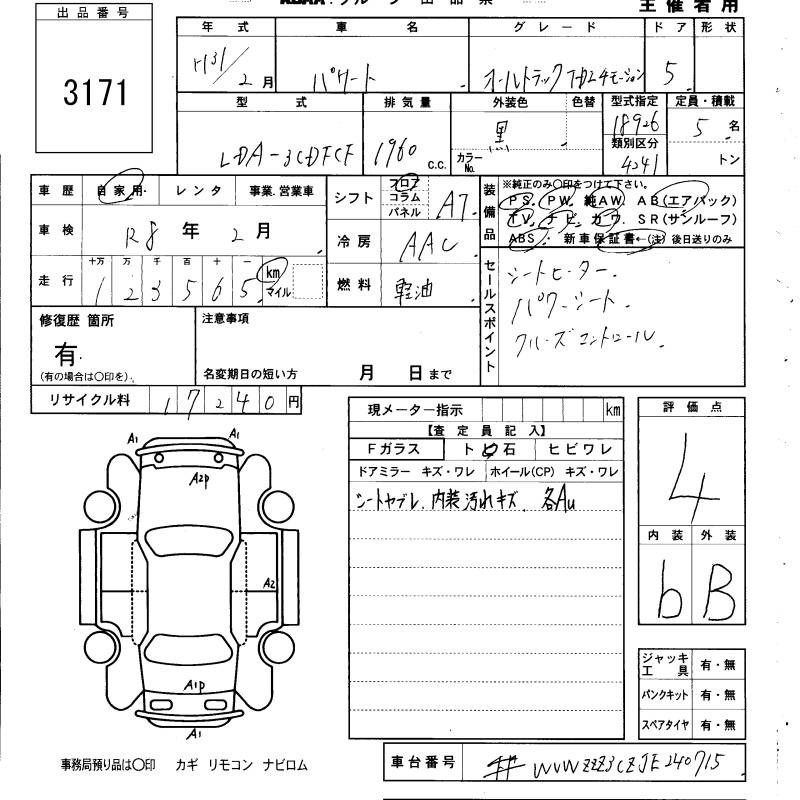 主催者用
出品番号
3171
年式 車名 グレード ドア 形状
H31/2月 パサート オールトラックTDI 4モーション 5
型式 排気量 外装色 色替 型式指定 定員・積載
LDA-3CDFCF 1960 c.c. 黒 カラーNo. 18926 5 名
類別区分
4241 トン
車歴 自家用 レンタ 事業.営業車
シフト フロア コラム パネル A7
装備品 ※純正のみ〇印をつけて下さい。
PS. PW. 純AW. AB(エアバック)
TV. ナビ. カワ. SR(サンルーフ)
ABS. 新車保証書←(注)後日送りのみ
車検 R8 年 2 月
冷房 AAC
走行 十万 万 千 百 十 一
1 2 3 5 6 5 km マイル
燃料 軽油
セールスポイント
シートヒーター.
パワーシート.
クルーズコントロール.
修復歴 箇所
有.
(有の場合は〇印を)
注意事項
名変期日の短い方 月 日まで
リサイクル料 17240円
現メーター指示 km
【査定員記入】
Fガラス トビ石 ヒビワレ
ドアミラー キズ・ワレ ホイール(CP) キズ・ワレ
シートヤブレ. 内装汚れキズ 各AU
評価点
4
内装 外装
b B
A1 A1
A2P
A2
A1P
A1
ジャッキ工具 有・無
パンクキット 有・無
スペアタイヤ 有・無
事務局預り品は〇印 カギ リモコン ナビロム
車台番号 # WVWZZZ3CZJE240715